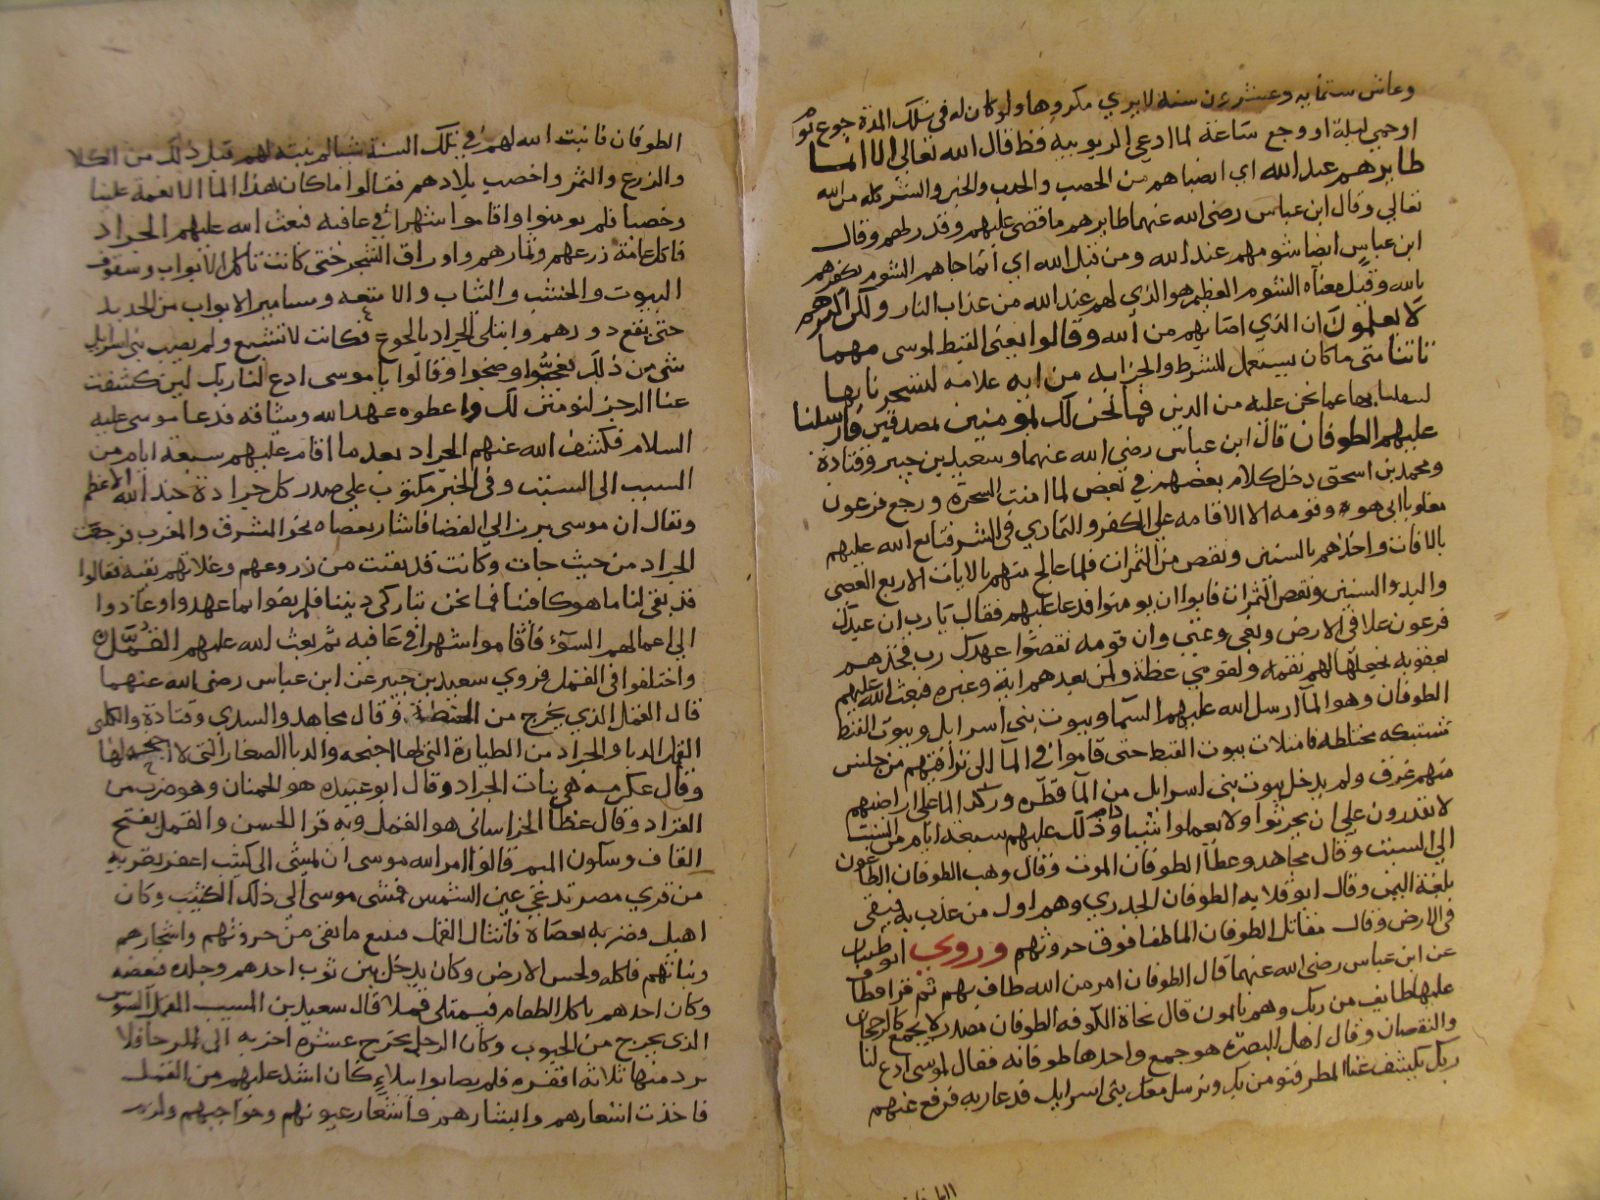 وعاش ستمايه وعشرين سنه لا يري مكروها ولو كان له في تلك المدة جوع يوم
او حمي ليلة او وجع ساعة لما ادعي الربوبيه قط قال الله تعالي الا انما
طايرهم عند الله اي انصباهم من الخصب والجدب والخير والشر كله من الله
تعالي وقال ابن عباس رضى الله عنهما طايرهم ما قضى عليهم وقدر لهم وقال
ابن عباس ايضا شومهم عند الله ومن قبل الله اي انما جاهم الشوم بكفرهم
بالله وقيل معناه الشوم العظيم هو الذي لهم عند الله من عذاب النار ولكن اكثرهم
لا يعلمون ان الذي اصابهم من الله وقالوا يعني القبط لموسى مهما
تاتنا متى ما كان يستعمل للشرط والجزا به من ايه علامه لتسحرنا بها
لتنقلنا بها عما نحن عليه من الدين فما نحن لك بمومنين بمصدقين فارسلنا
عليهم الطوفان قال ابن عباس رضى الله عنهما وسعيد بن جبير وقتادة
ومحمد بن اسحق دخل كلام بعضهم في بعض لما امنت السحرة ورجع فرعون
مغلوبا ابي هو وقومه الا الاقامه علي الكفر والتمادي في الشر فتابع الله عليهم
بالافات واخذهم بالسنين ونقص من الثمرات فلما عالج منهم بالايات الاربع العصى
واليد والسنين ونقص الثمرات فابوا ان يومنوا فدعا عليهم فقال يا رب ان عبدك
فرعون علا في الارض وبغى وعتى وان قومه نقضوا عهدك رب فخذهم
بعقوبه تجعلها لهم نقمه ولقومي عظة ولمن بعدهم اية وعبره فبعث الله عليهم
الطوفان وهو الما ارسل الله عليهم السما وبيوت بني اسرايل وبيوت القبط
مشتبكه مختلطه فامتلات بيوت القبط حتى قاموا في الما الى تراقيهم من جلس
منهم غرق ولم يدخل بيوت بني اسرايل من الما قطره وركد الما علي اراضيهم
لا يقدرون علي ان يحرثوا ولا يعملوا شيا ودام ذلك عليهم سبعة ايام من السبت
الي السبت وقال مجاهد وعطا الطوفان الموت وقال وهب الطوفان الطاعون
بلغة اليمن وقال ابو قلابه الطوفان الجدري وهم اول من عذب به فبقي
في الارض وقال مقاتل الطوفان الما طفا فوق حروثهم وروي ابو ظبيان
عن ابن عباس رضى الله عنهما قال الطوفان امر من الله طاف بهم ثم قرا فطاف
عليها طايف من ربك وهم نايمون قال نحاة الكوفه الطوفان مصدر لا يجمع كالرجحان
والنقصان وقال اهل البصرة هو جمع واحدها طوفانه فقال لموسى ادع لنا
ربك يكشف عنا المطر فنومن بك ونرسل معك بني اسرايل فدعا ربه فرفع عنهم
الطوفان
الطوفان فانبت الله لهم في تلك السنة شيا لم ينبته لهم قبل ذلك من الكلا
والزرع والثمر واخصب بلادهم فقالوا ما كان هذا الما الا نعمة علينا
وخصبا فلم يومنوا واقاموا شهرا في عافيه فبعث الله عليهم الجراد
فاكل عامة زرعهم وثمارهم واوراق الشجر حتى كانت تاكل الابواب وسقوف
البيوت والخشب والثياب والامتعه ومسامير الابواب من الحديد
حتى تقع دورهم وابتلي الجراد بالجوع فكانت لا تشبع ولم يصب بني اسرايل
شى من ذلك فعجوا وضجوا وقالوا يا موسى ادع لنا ربك لين كشفت
عنا الرجز لنومنن لك واعطوه عهد الله وميثاقه فدعا موسى عليه
السلام فكشف الله عنهم الجراد بعد ما اقام عليهم سبعة ايام من
السبت الى السبت وفي الخبر مكتوب علي صدر كل جرادة جند الله الاعظم
ويقال ان موسى برز الي الفضا فاشار بعصاه نحو المشرق والمغرب فرجعت
الجراد من حيث جات وكانت قد بقيت من زروعهم وغلاتهم بقيه فقالوا
قد بقى لنا ما هو كافينا فما نحن بتاركي ديننا فلم يفوا بما عهدوا وعادوا
الي اعمالهم السوء فاقاموا شهرا في عافيه ثم بعث الله عليهم القمل
واختلفوا في القمل فروي سعيد بن جبير عن ابن عباس رضى الله عنهما
قال القمل الذي يخرج من الحنطة وقال مجاهد والسدي وقتادة والكلبى
القمل الدبا والجراد من الطيارة التي لها اجنحه والدبا الصغار التى لا اجنحه لها
وقال عكرمه هي بنات الجراد وقال ابو عبيده هو الحمنان وهو ضرب من
القراد وقال عطا الخراسانى هو القمل وبه قرا الحسن والقمل بفتح
القاف وسكون الميم قالوا امر الله موسى ان يمشى الى كثيب اعفر بقريه
من قري مصر تدعي عين الشمس فمشى موسى الي ذلك الكثيب وكان
اهيل وضربه بعصاه فانثال القمل فتتبع ما بقى من حروثهم واشجارهم
ونباتهم فاكله ولحس الارض وكان يدخل بين ثوب احدهم وجلده فيعضه
وكان احدهم ياكل الطعام فيمتلي قملا قال سعيد بن المسيب القمل السوس
الذي يخرج من الحبوب وكان الرجل يخرج عشره اجربه الى الرحا فلا
يرد منها ثلاثة اقفزه فلم يصابوا ببلاء كان اشد عليهم من القمل
فاخذت اشعارهم وابشارهم واشعار عيونهم وحواجبهم ولزم